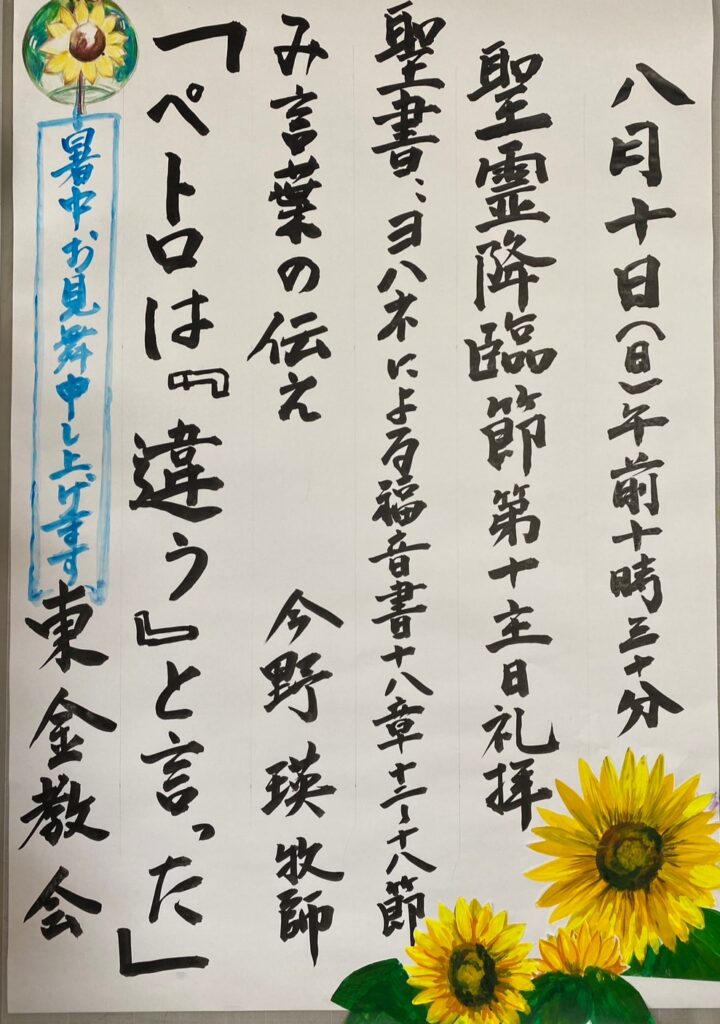 八月十日(日)午前十時三十分
聖霊降臨節第十主日礼拝
聖書:ヨハネによる福音書十八章十二~十八節
み言葉の伝え 今野 瑛 牧師
「ペトロは『違う』と言った」
暑中お見舞申し上げます
東金教会